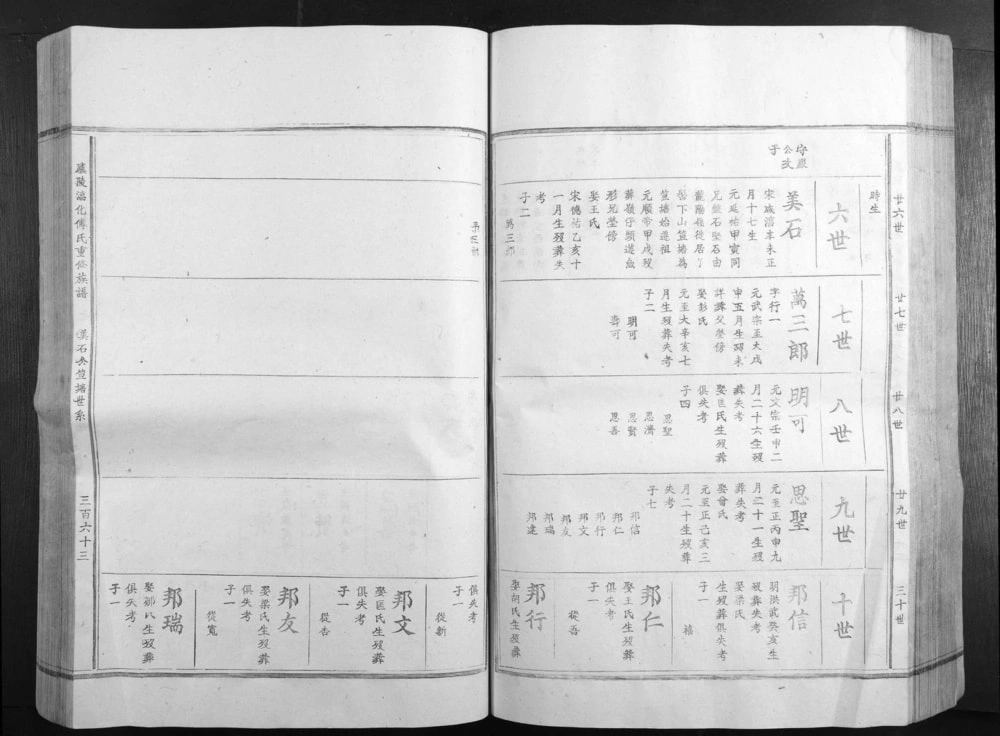 廿六世
廿七世
廿八世
廿九世
三十世
時生
六世
七世
八世
九世
十世
公玫
子
美石
宋咸淳辛未正
月十七生
元延祐甲寅同
兄盤石堅石由
下山笪塘為
笪塘始遷祖
元順帝甲戌歿
形兆塋傍
娶王氏
宋德祐乙亥十
一月生歿葬失
考
子二
萬三郎
萬三郎
字行一
元武宗至大戊
申五月生歿未
詳葬父塋傍
娶彭氏
元至大辛亥七
月生歿葬失考
子二
明可
壽可
明可
元文宗壬申二
月二十六生歿
葬失考
娶匡氏生歿葬
俱失考
子四
思聖
思濟
思賢
思善
思聖
元至正丙申九
月二十一生歿
葬失考
娶曾氏
元至正己亥三
月二十生歿葬
失考
子七
邦信
邦仁
邦行
邦文
邦友
邦瑞
邦達
邦信
明洪武癸亥生
歿葬失考
娶梁氏
生歿葬俱失考
子一
邦仁
娶王氏生歿葬
俱失考
子一
從吾
邦行
娶胡氏生歿葬
俱失考
子一
從新
邦文
娶匡氏生歿葬
俱失考
子一
從杏
邦友
娶梁氏生歿葬
俱失考
子一
從寬
邦瑞
娶郭氏生歿葬
俱失考
子一
廬陵淳化傅氏重修族譜
美石公笪塘世系
三百六十三